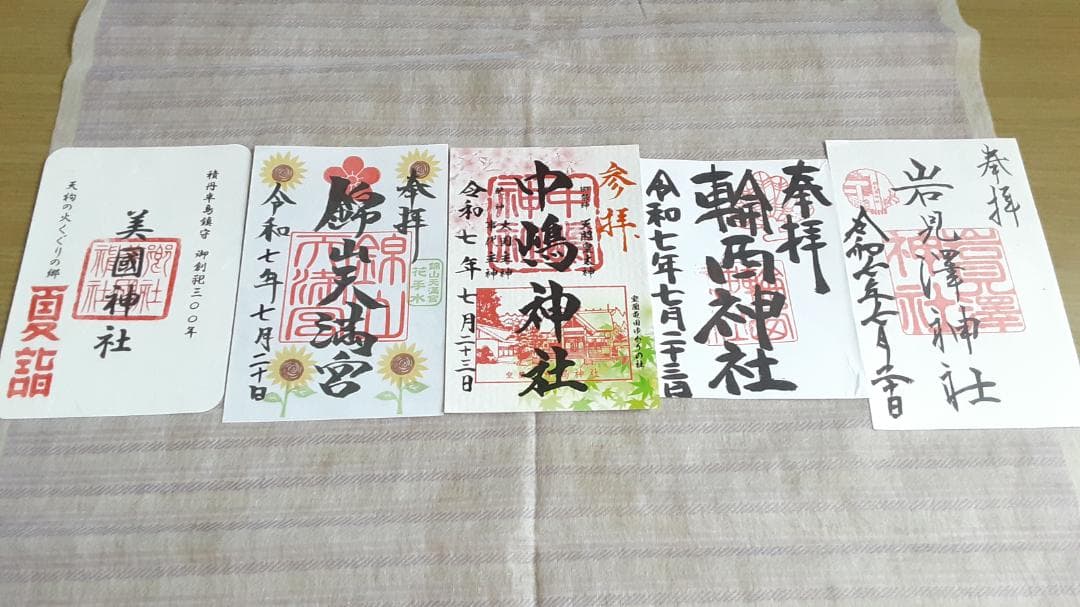 積丹車鳥鎮守 御創祀三〇〇年
美國神社
天狗の火くぐりの郷
夏詣
奉拝
錦山天満宮
令和七年七月二十日
錦山天満宮
花手水
錦山天満宮
参拝
中嶋神社
令和七年七月二十三日
室蘭発祥ゆかりの社
奉拝
輪西神社
令和七年七月二十三日
奉拝
岩見澤神社
令和七年七月二十日
岩見澤神社